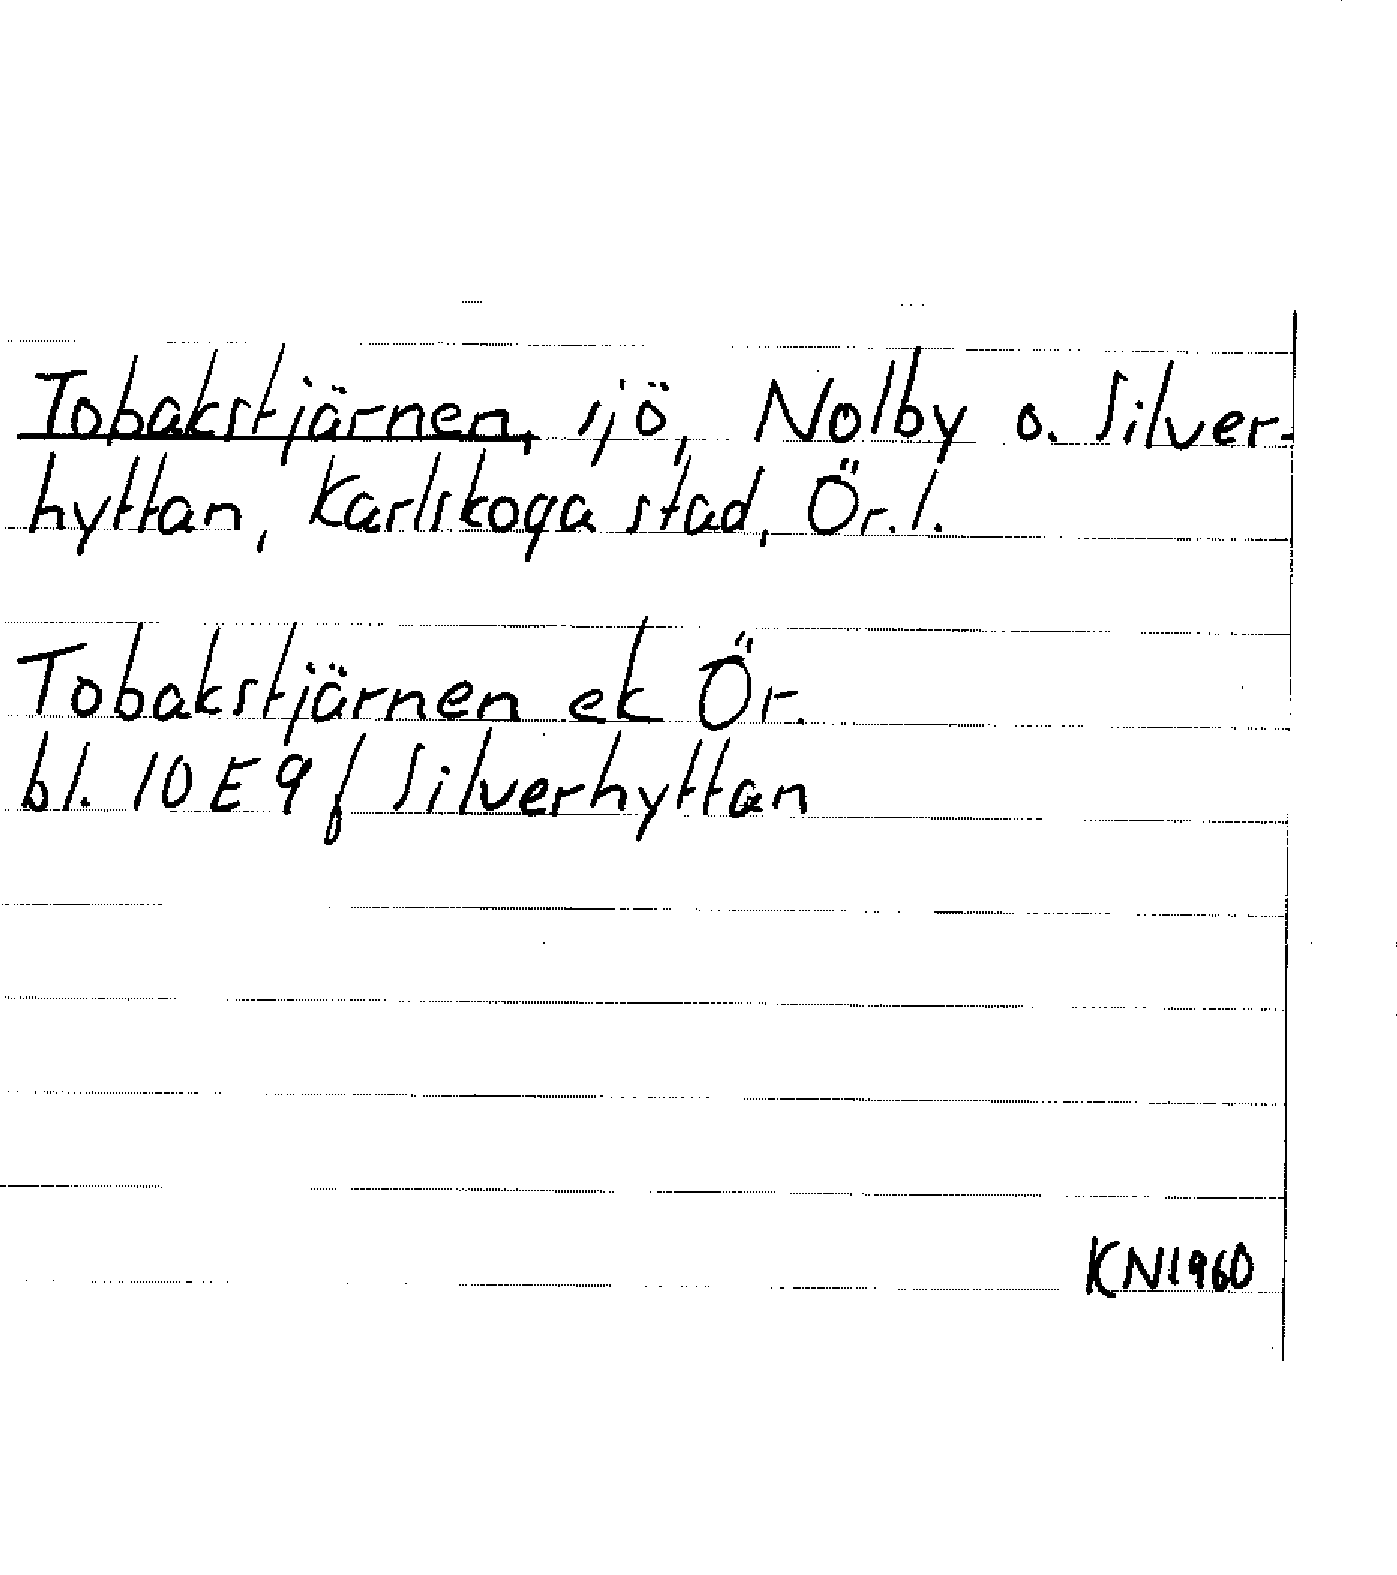 Tobakstjärnen, sjö, Nolby o. Silver-
hyttan, Karlskoga stad, Ör. l.
Tobakstjärnen ek Ör.
bl. 10 E 9 f Silverhyttan
KN1960